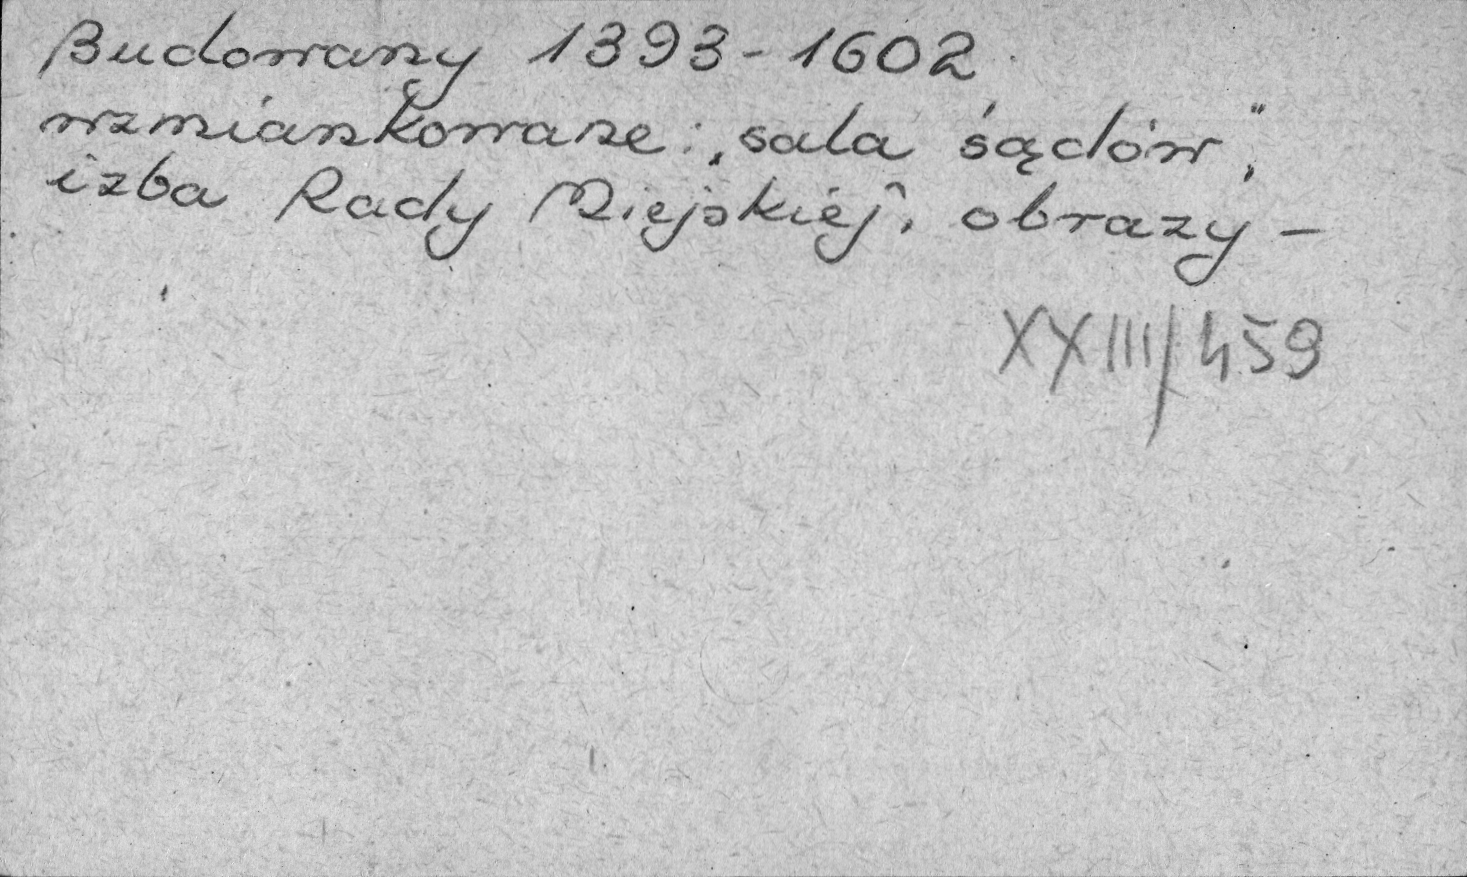 Budowany 1393-1602
wzmiankowane: „sala sądów",
izba Rady Miejskiej, obrazy -
XXIII/459